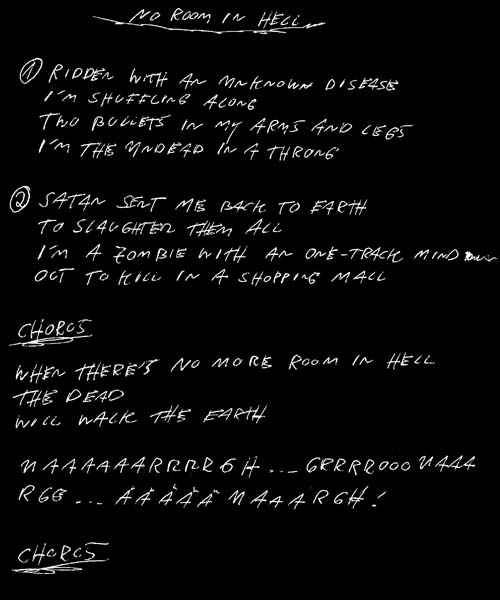 NO ROOM IN HELL
① RIDDEN WITH AN UNKNOWN DISEASE
I'M SHUFFLING ALONG
TWO BULLETS IN MY ARMS AND LEGS
I'M THE UNDEAD IN A THRONG
② SATAN SENT ME BACK TO EARTH
TO SLAUGHTER THEM ALL
I'M A ZOMBIE WITH AN ONE-TRACK MIND
OUT TO KILL IN A SHOPPING MALL
CHORUS
WHEN THERE'S NO MORE ROOM IN HELL
THE DEAD
WILL WALK THE EARTH
UAAAAAARRRRGH... GRRRROOOUAAA
RGG... ÄÄÄÄÄUAAARGH!
CHORUS